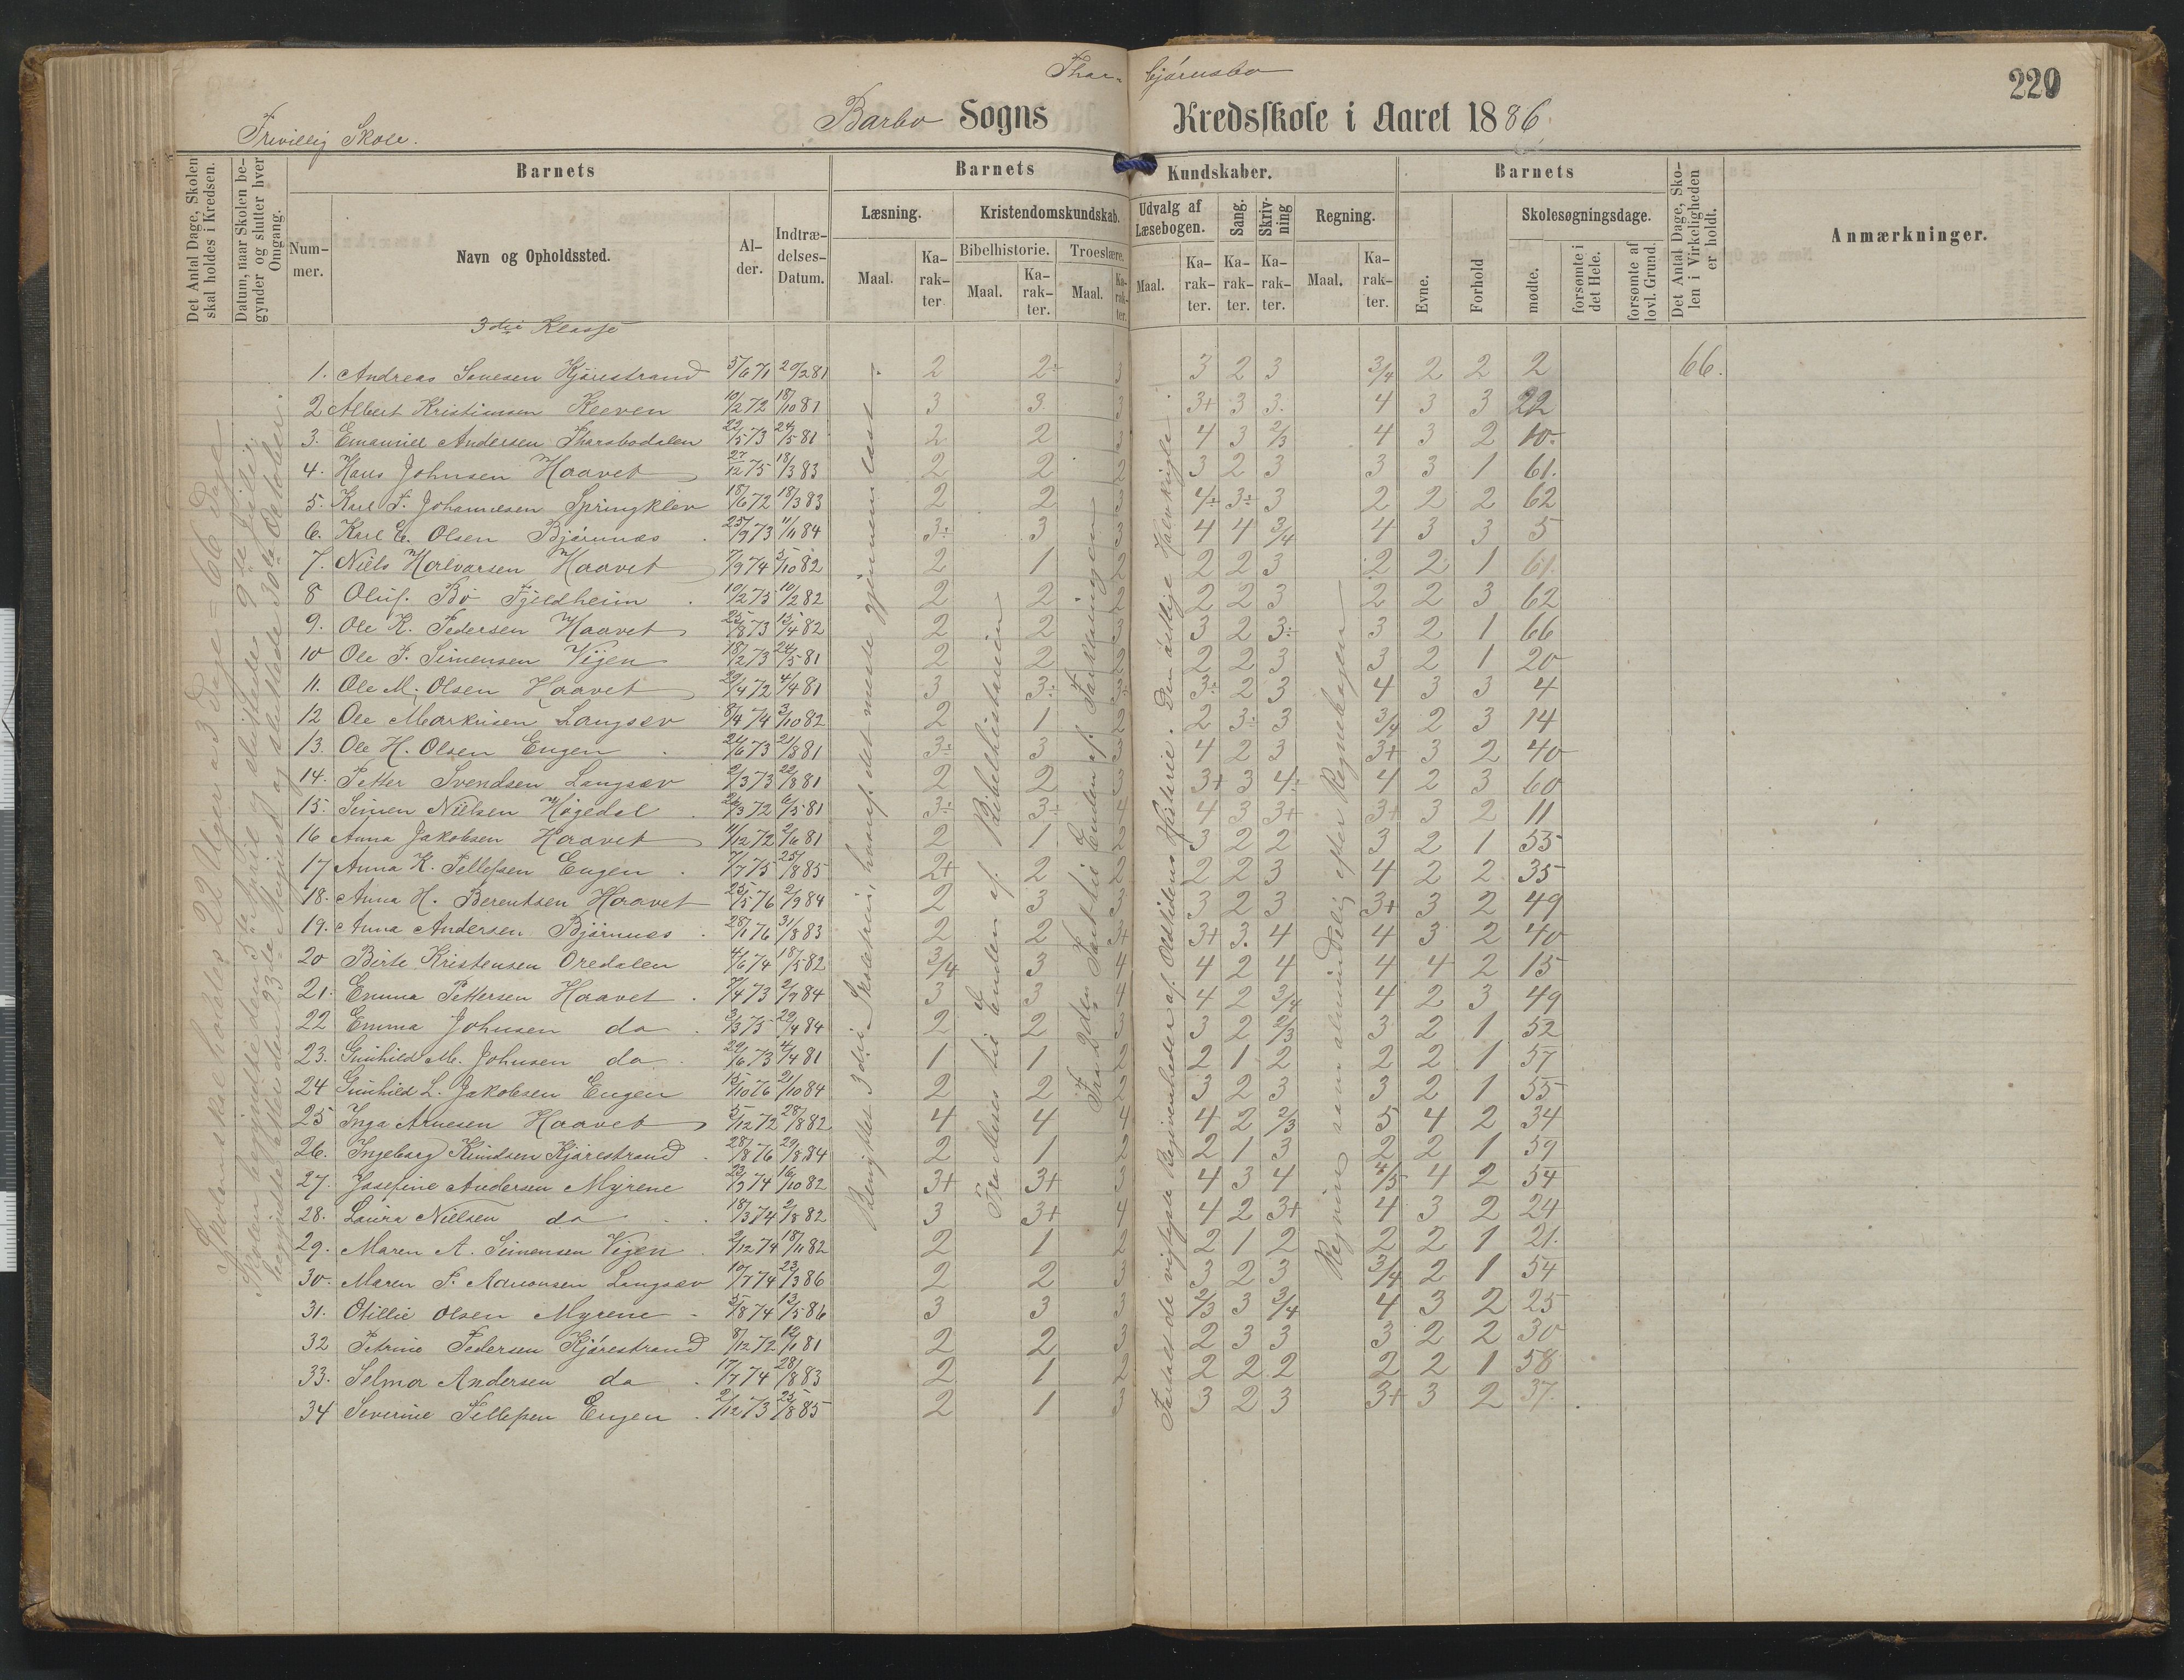 Thor- bjørnsbo
220
Frivillig Skole.
Barbo Sogns Kredsskole i Aaret 1886.
Det Antal Dage, Skolen skal holdes i Kredsen.
Datum, naar Skolen begynder og slutter hver Omgang.
Barnets
Barnets Kundskaber.
Barnets
Det Antal Dage, Skolen i Virkeligheden er holdt.
Anmærkninger.
Nummer.
Navn og Opholdssted.
Alder.
Indtrædelses-Datum.
Læsning.
Kristendomskundskab.
Udvalg af Læsebogen.
Sang.
Skrivning
Regning.
Evne.
Forhold
Skolesøgningsdage.
Bibelhistorie.
Troeslære.
Maal.
Karakter.
Maal.
Karakter.
Maal.
Karakter.
Maal.
Karakter.
Karakter.
Karakter.
Maal.
Karakter.
mødte.
forsømte i det Hele.
forsømte af lovl. Grund.
3die Klasse
1. Andreas Kjørestrand 5/6 71 20/2 81 2 2÷ 3 3 2 3 3/4 2 2 2 66.
2 Albert Kristiansen Kleven 10/2 72 18/10 81 3 3. 3 3+ 3 3. 4 3 3 22
3. Emanuel Andersen 22/5 73 24/5 81 2 2 3 4 3 2/3 4 3 2 10.
4. Hans Johnsen Haavet 27/12 75 18/3 83 2 2 2 3 2 3 3 3 1 61.
5. Karl J. Johannesen Springklev 18/6 72 18/3 83 2 2 3 4÷ 3÷ 3 2 2 2 62
6. Karl E. Olsen Bjørnnæs 25/9 73 11/11 84 3÷ 3 3 4 4 3/4 4 3 3 5
7. Niels Halvorsen Haavet 7/9 74 5/10 82 2 1 2 2 2 3 2 2 1 61.
8 Oluf Bø Fjeldheim 10/2 75 10/2 82 2 2 2 2 2 3 2 2 3 62
9. Ole K. Pedersen Haavet 25/8 73 15/4 82 2 2 3 3 2 3÷ 3 2 1 66
10 Ole J. Simensen Vijen 18/2 73 24/5 81 2 2 2 2 2 3 3 2 1 20
11. Ole M. Olsen Haavet 29/4 72 4/4 81 3 3÷ 3÷ 3÷ 2 3 4 3 3 4
12 Ole Markusen Langsæv 8/4 74 3/10 82 2 1 2 2 3÷ 3 3/4 2 3 14
13. Ole H. Olsen Engen 24/6 73 21/8 81 3÷ 3 3 4 2 3 3+ 3 2 40
14. Petter Svendsen Langsæv 2/3 73 22/8 81 2 2 3 3+ 3 4÷ 4 2 3 60
15. Simen Nielsen Høgedal 26/3 72 6/5 81 3÷ 3÷ 4 4 3 3+ 3+ 3 2 11
16 Anna Jakobsen Haavet 11/12 72 2/6 81 2 1 2 3 2 2 3 2 1 55
17 Anna K. Tellefsen Engen 7/7 75 25/8 85 2+ 2 2 2 2 3 4 2 2 35
18. Anna H. Berentsen Haavet 25/5 76 2/9 84 2 3 3 3 2 3 3+ 3 2 49
19. Anna Andersen Bjørnnæs 28/1 76 31/8 83 2 2 3+ 3+ 3. 4 4 3 2 40
20 Birte Kristensen Oredalen 4/6 74 18/5 82 3/4 3 4 4 2 4 4 4 2 15
21. Emma Pettersen Haavet 7/4 73 2/7 84 3 3 4 4 2 3/4 4 2 3 49
22 Emma Johnsen do 3/3 75 29/4 84 2 2 3 3 2 2/3 3 2 1 52
23. Gunhild M. Johnsen do 29/6 73 4/4 81 1 1 2 2 1 2 2 2 1 57
24 Gunhild L. Jakobsen Engen 15/10 76 21/10 84 2 2 2 3 2 3 3 2 1 55
25 Inga Arnesen Haavet 5/12 72 28/8 82 4 4 4 4 2 2/3 5 4 2 34
26. Ingeborg Knudsen Kjørestrand 28/8 76 29/8 84 2 1 2 2 1 3 2 2 1 59
27. Josefine Andersen Myrene 23/3 74 16/10 82 3+ 3+ 3 4 3 4 4/5 4 2 54
28. Laura Nielsen do 18/3 74 2/8 82 3 3+ 4 4 2 3+ 4 3 2 24
29. Maren A. Simensen Vijen 2/12 74 18/11 82 2 1 2 2 1 2 2 2 1 21.
30. Maren S. Langsæv 10/7 74 23/3 86 2 2 3 3 2 3 3/4 2 1 54
31. Otillie Olsen Myrene 5/8 74 13/5 86 3 3 3 2/3 3 3/4 4 3 2 25
32 Petrine Pedersen Kjørestrand 8/12 72 12/1 81 2 2 3 2 3 3 3 2 2 30
33. Selma Andersen do 17/7 74 28/8 83 2 1 2 2 2 2 2 2 1 58
34 Severine Tellefsen Engen 2/12 73 25/8 85 2 1 3 3 2 3 3+ 3 2 37.
Hvoraf skal holdes 22 Uger a 3 Dage = 66 Dage
Skolen begyndte den 5te April og sluttede 9de Juli,
begyndte atter den 23de August og sluttede 30de Oktober.
Jensens 3die Skoletrin, hvoraf det meste gjennemlæst.
Fra Moses til Enden af Bibelhistorien
Fra 2den Part til Enden af Forklaringen
Fortalt de vigtigste Begivenheder af Oldtidens Historie. Den østlige Halvkugle.
Regning som almindelig efter Regnebogen